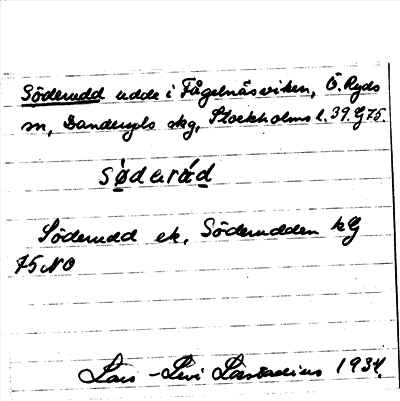 Söderudd udde i Fågelnäsviken, Ö. Ryds
sn, Danderyds skg, Stockholms l. 39. G 75.
Söderudd ek, Söderudden kG
75 NO
Lars-Levi Læstadius 1934.